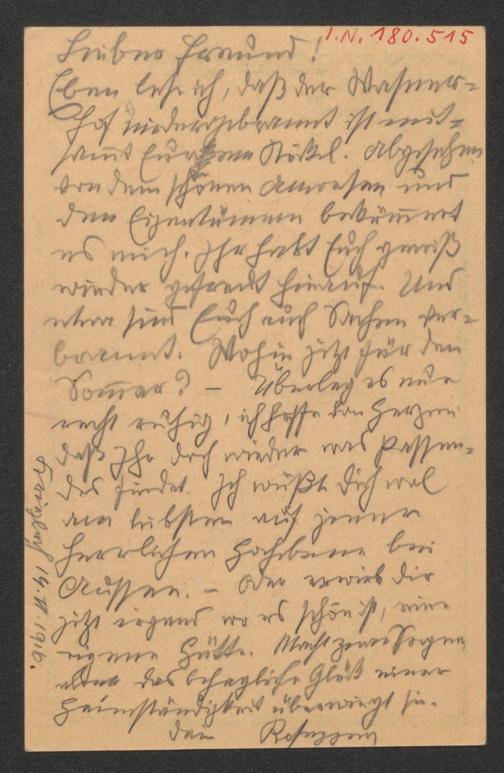 I.N. 180.515
Lieber Freund!
Eben lese ich, daß der Wasner-
hof niedergebrannt ist mit-
samt Eurem Stöckl. Abgesehen
von dem schönen Anwesen und
den Eigentümern bekümmert
es mich. Ihr habt Euch gewiß
wieder gefreut hinauf. Und
etwa sind Euch auch Sachen ver-
brannt. Wohin jetzt für den
Sommer? – Überleg es nur
recht ruhig, ich hoffe von Herzen
daß Ihr doch wieder was Passen-
des findet. Ich wüßt Dich wol
am liebsten auf jener
herrlichen Hochebene bei
Aussee. – Oder erwirb Dir
jetzt irgend wo es schön ist, eine
eigene Hütte. Macht zwar Sorgen
aber das behagliche Glück einer
Heimständigkeit überwiegt sie.
Dein Rosegger
Krieglach 14. VI. 1916.